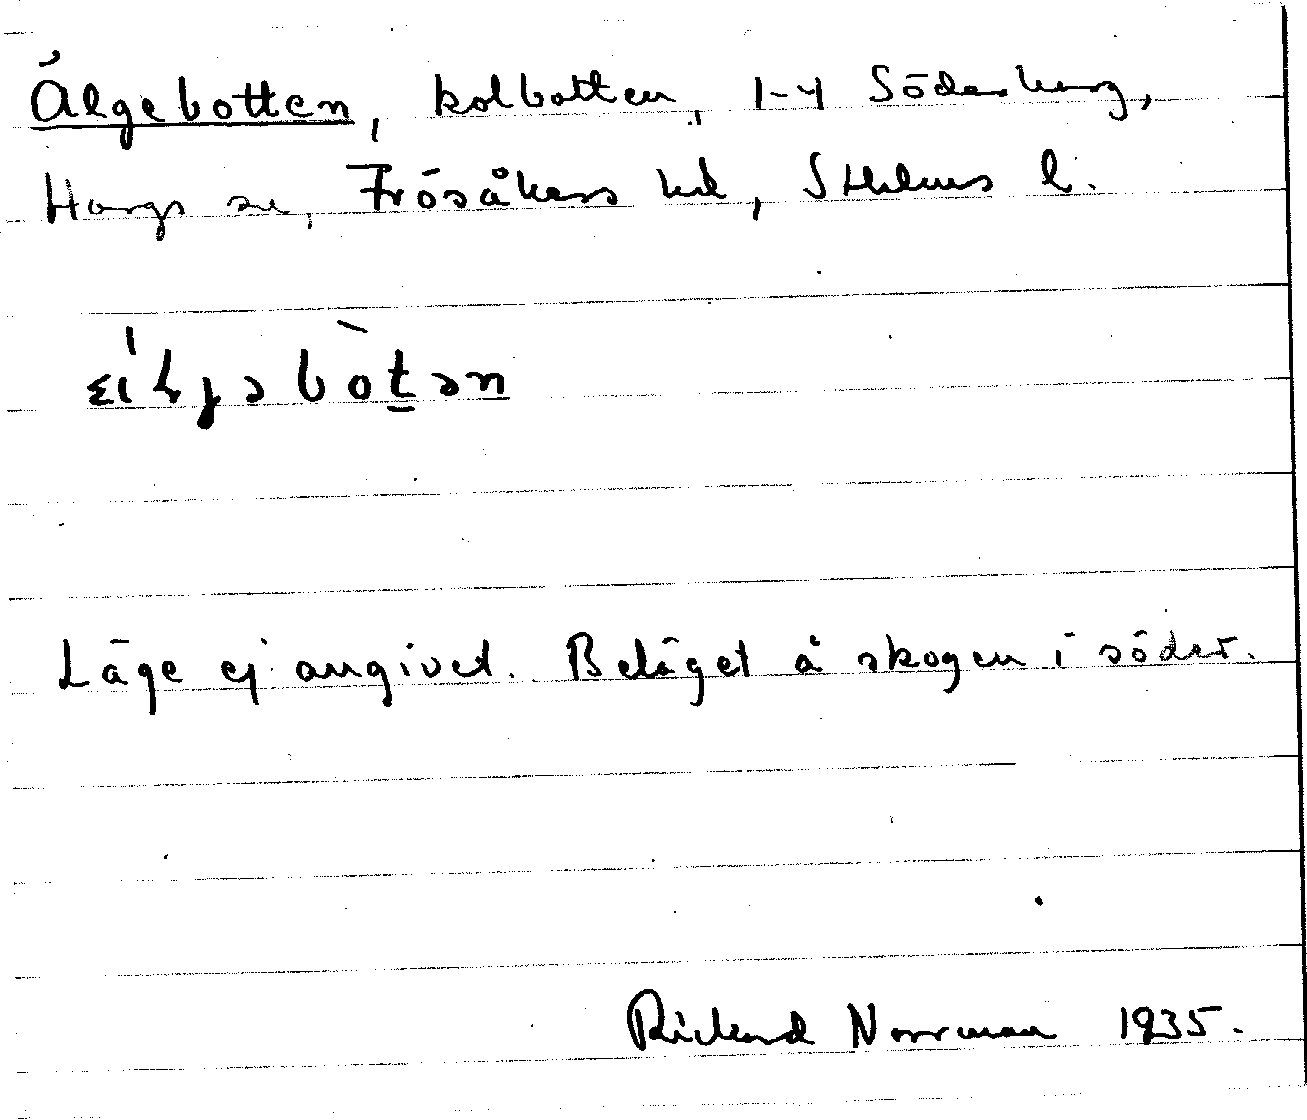 Älgebotten, kolbotten, 1-4 Söderberg,
Hargs sn, Frösåkers hd, Sthlms l.
Läge ej angivet. Beläget å skogen i söder.
Rickard Norrman 1935.